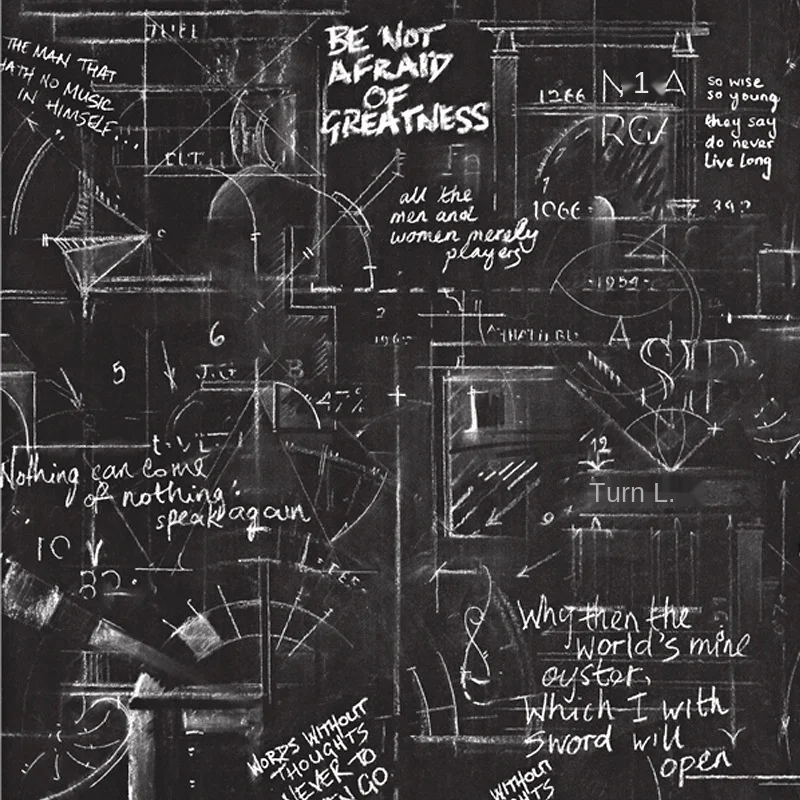 THE MAN THAT
HATH NO MUSIC
IN HIMSELF...
BE NOT
AFRAID
OF
GREATNESS
so wise
so young
they say
do never
live long
1266
N 1 A
1066
all the
men and
women merely
players
1954
6
5
A
B
Nothing can come
of nothing:
speak again
12
Turn L.
10
Why then the
world's mine
oyster,
Which I with
sword will
open
WORDS WITHOUT
THOUGHTS
NEVER TO
GO
WITHOUT